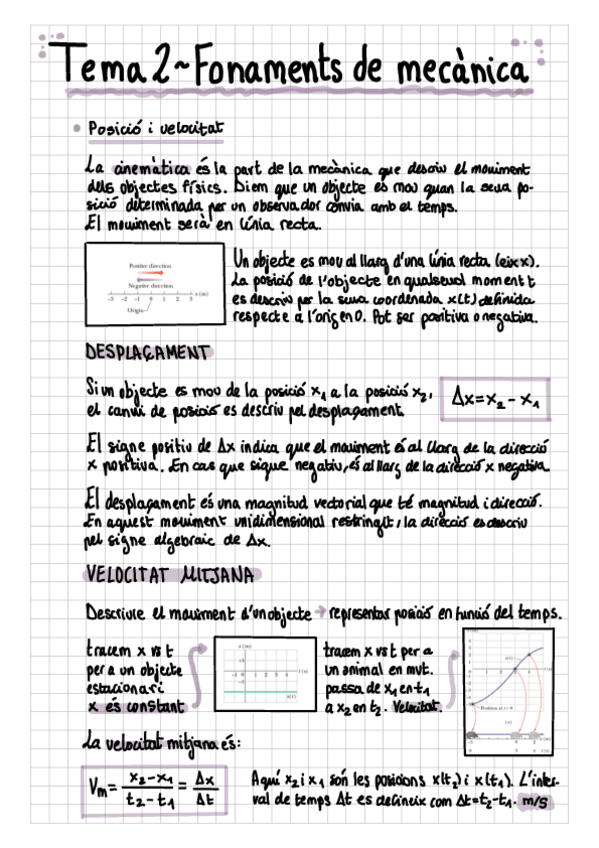 Tema 2 ~ Fonaments de mecànica
• Posició i velocitat
La cinemàtica és la part de la mecànica que descriu el moviment
dels objectes físics. Diem que un objecte es mou quan la seua po-
sició determinada per un observador canvia amb el temps.
El moviment serà en línia recta.
Positive direction
Negative direction
x (m)
-3 -2 -1 0 1 2 3
Origin
Un objecte es mou al llarg d'una línia recta (eix x).
La posició de l'objecte en qualsevol moment t
es descriu per la seua coordenada x(t) definida
respecte a l'origen O. Pot ser positiva o negativa.
DESPLAÇAMENT
Si un objecte es mou de la posició x₁ a la posició x₂,
el canvi de posició es descriu pel desplaçament
Δx = x₂ - x₁
El signe positiu de Δx indica que el moviment és al llarg de la direcció
x positiva. En cas que sigue negatiu, és al llarg de la direcció x negativa
El desplaçament és una magnitud vectorial que té magnitud i direcció.
En aquest moviment unidimensional restringit, la direcció es descriu
pel signe algebraic de Δx.
VELOCITAT MITJANA
Descriure el moviment d'un objecte → representar posició en funció del temps.
tracem x vs t
per a un objecte
estacionari
x és constant
x (m)
t (s)
x(t)
tracem x vs t per a
un animal en mvt.
passa de x₁ en t₁
a x₂ en t₂. Velocitat.
La velocitat mitjana és:
Vm = x₂-x₁ / t₂-t₁ = Δx / Δt
Aquí x₂ i x₁ són les posicions x(t₂) i x(t₁). L'inter-
val de temps Δt es defineix com Δt=t₂-t₁. m/s